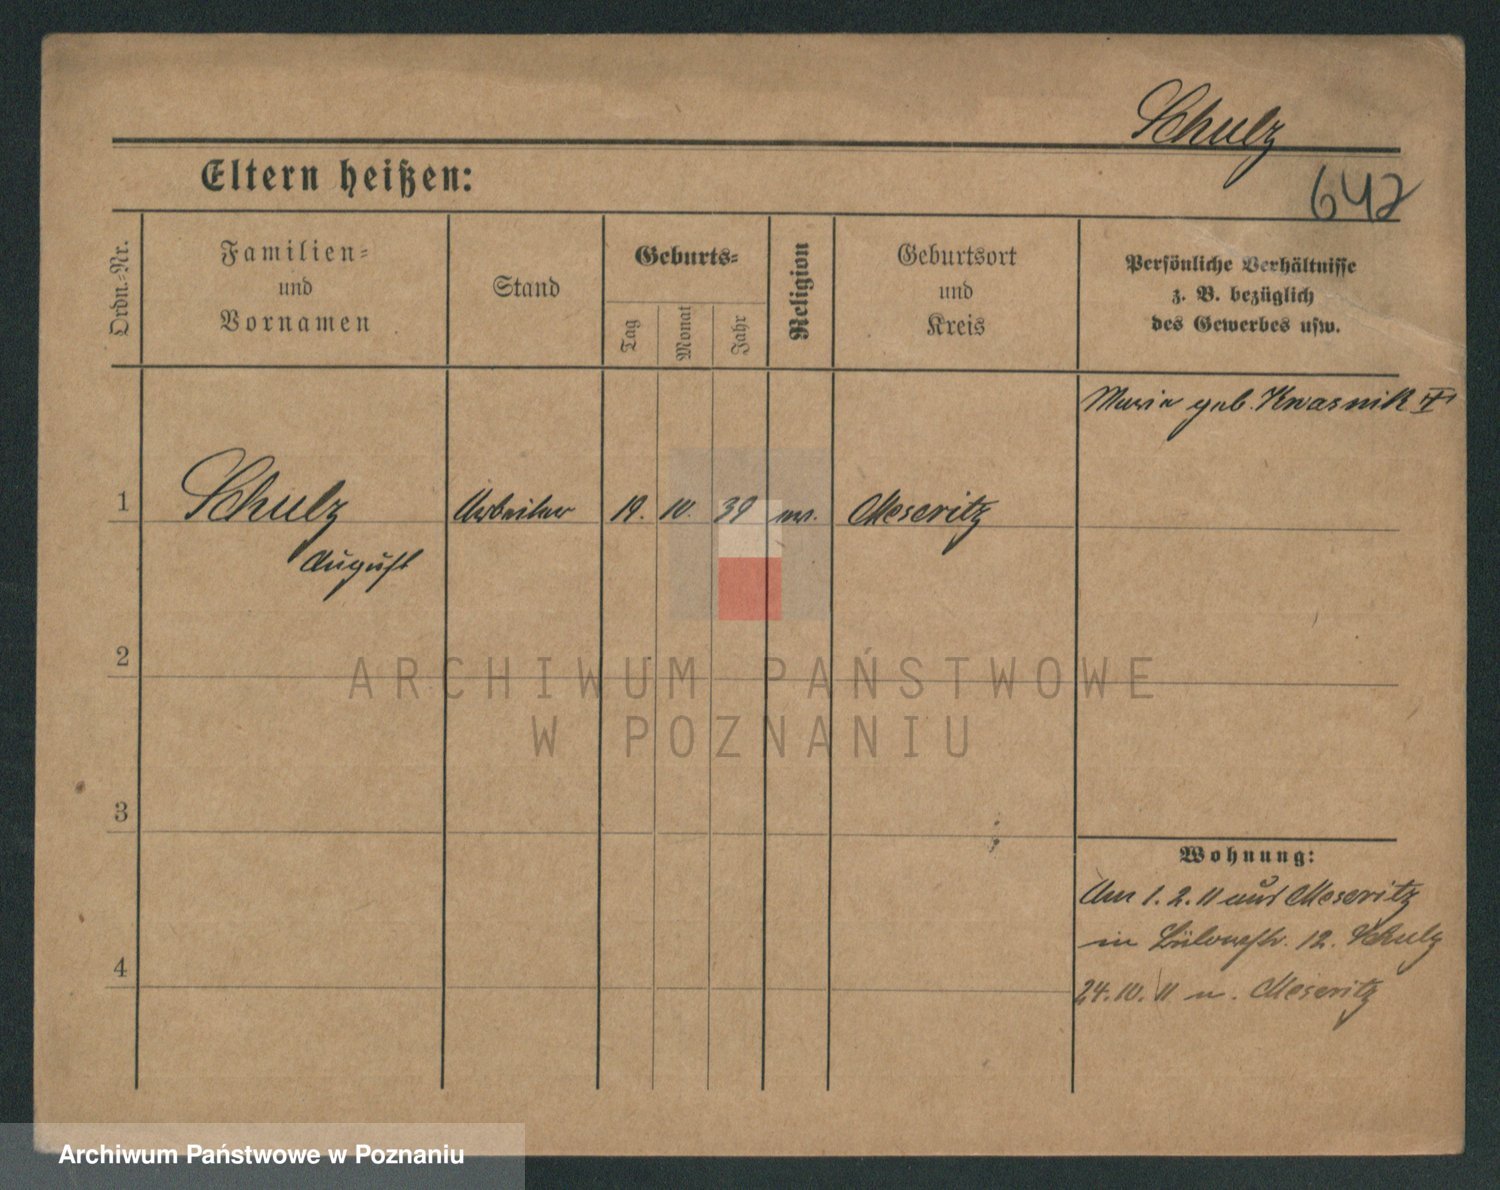 Schulz
Eltern heißen:
642
Ordn.-Nr.
Familien-
und
Vornamen
Stand
Geburts-
Tag
Monat
Jahr
Religion
Geburtsort
und
Kreis
Persönliche Verhältnisse
z. B. bezüglich
des Gewerbes usw.
Maria geb. Kwasnik
1
Schulz
August
Arbeiter
19. 10. 39
Meseritz
2
3
4
Wohnung:
Am 1. 2. 11 aus Meseritz
in 12. Schulz
24. 10. 11 n. Meseritz
ARCHIWUM PAŃSTWOWE
W POZNANIU
Archiwum Państwowe w Poznaniu